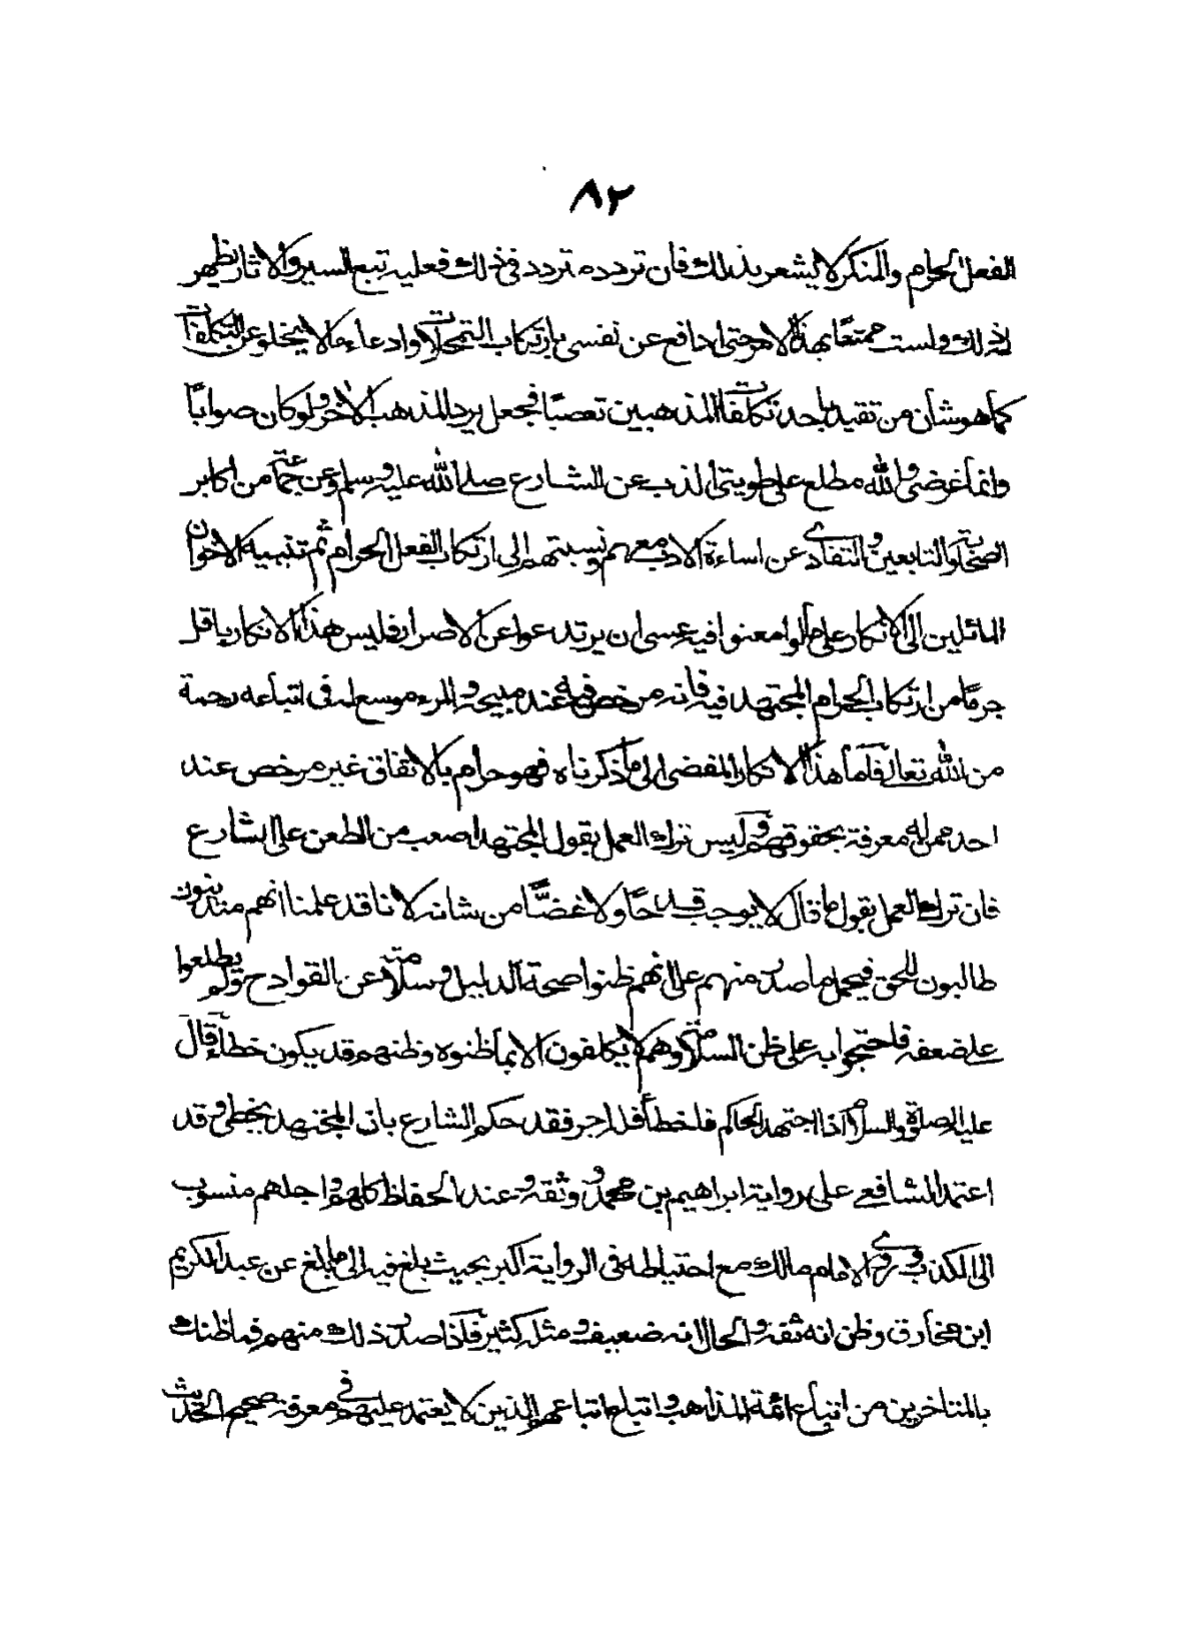 ٨٢
الفعل الحرام والمنكر لا يشعر بذلك فان تردد متردد في ذلك فعليه تتبع السير والاثار يظهر
له ذلك ولست ممتعا بهذا الامر حتى ادافع عن نفسي بارتكاب التمحلات وادعاء ما لا يخلو عن التكلفات
كما هو شأن من تقيد باحد تكلفات المذهبين تعصبًا فجعل يرد المذهب الاخر ولو كان صوابًا
وانما غرضي والله مطلع على طويتي الذب عن الشارع صلى الله عليه وسلم وعن جماعة من اكابر
الصحابة والتابعين والتفادي عن اساءة الادب معهم ونسبتهم الى ارتكاب الفعل الحرام ثم تنبيه الاخوان
المائلين الى الانكار على ما لو امعنوا فيه عسى ان يرتدعوا عن الاصرار فليس هذا الانكار باقل
جرمًا من ارتكاب الحرام المجتهد فيه فانه مرخص فيه عند مبيحه والمرء موسع له في اتباعه رحمة
من الله تعالى فاما هذا الانكار المفضي الى ما ذكرناه فهو حرام بالاتفاق غير مرخص عند
احد ممن له معرفة بحقوقهم وليس ترك العمل بقول المجتهد اصعب من الطعن على الشارع
فان ترك العمل بقول ما قال لا يوجب قدحًا ولا غضًّا من شانه لانا قد علمنا انهم متدينون
طالبون للحق فيحمل ما صدر منهم على انهم ظنوا صحة الدليل وسلامته عن القوادح ولم يطلعوا
على ضعفه فاحتجوا به على ظن السلامة وهم لا يكلفون الا بما ظنوه وظنهم قد يكون خطأ قال
عليه الصلوة والسلام اذا اجتهد الحاكم فاخطأ فله اجر فقد حكم الشارع بان المجتهد يخطي وقد
اعتمد الشافعي على رواية ابراهيم بن محمد ووثقه وعند الحفاظ كلهم او اجلهم منسوب
الى الكذب وروى الامام مالك مع احتياطه في الرواية اكبر بحيث بلغ فيه الى ما بلغ عن عبد الكريم
ابن مخارق وظن انه ثقة والحال انه ضعيف ومثله كثير فاذا صدر ذلك منهم فما ظنك
بالمتاخرين من اتباع ائمة المذاهب واتباع اتباعهم الذين لا يعتمد عليهم في معرفة صحيح الحديث